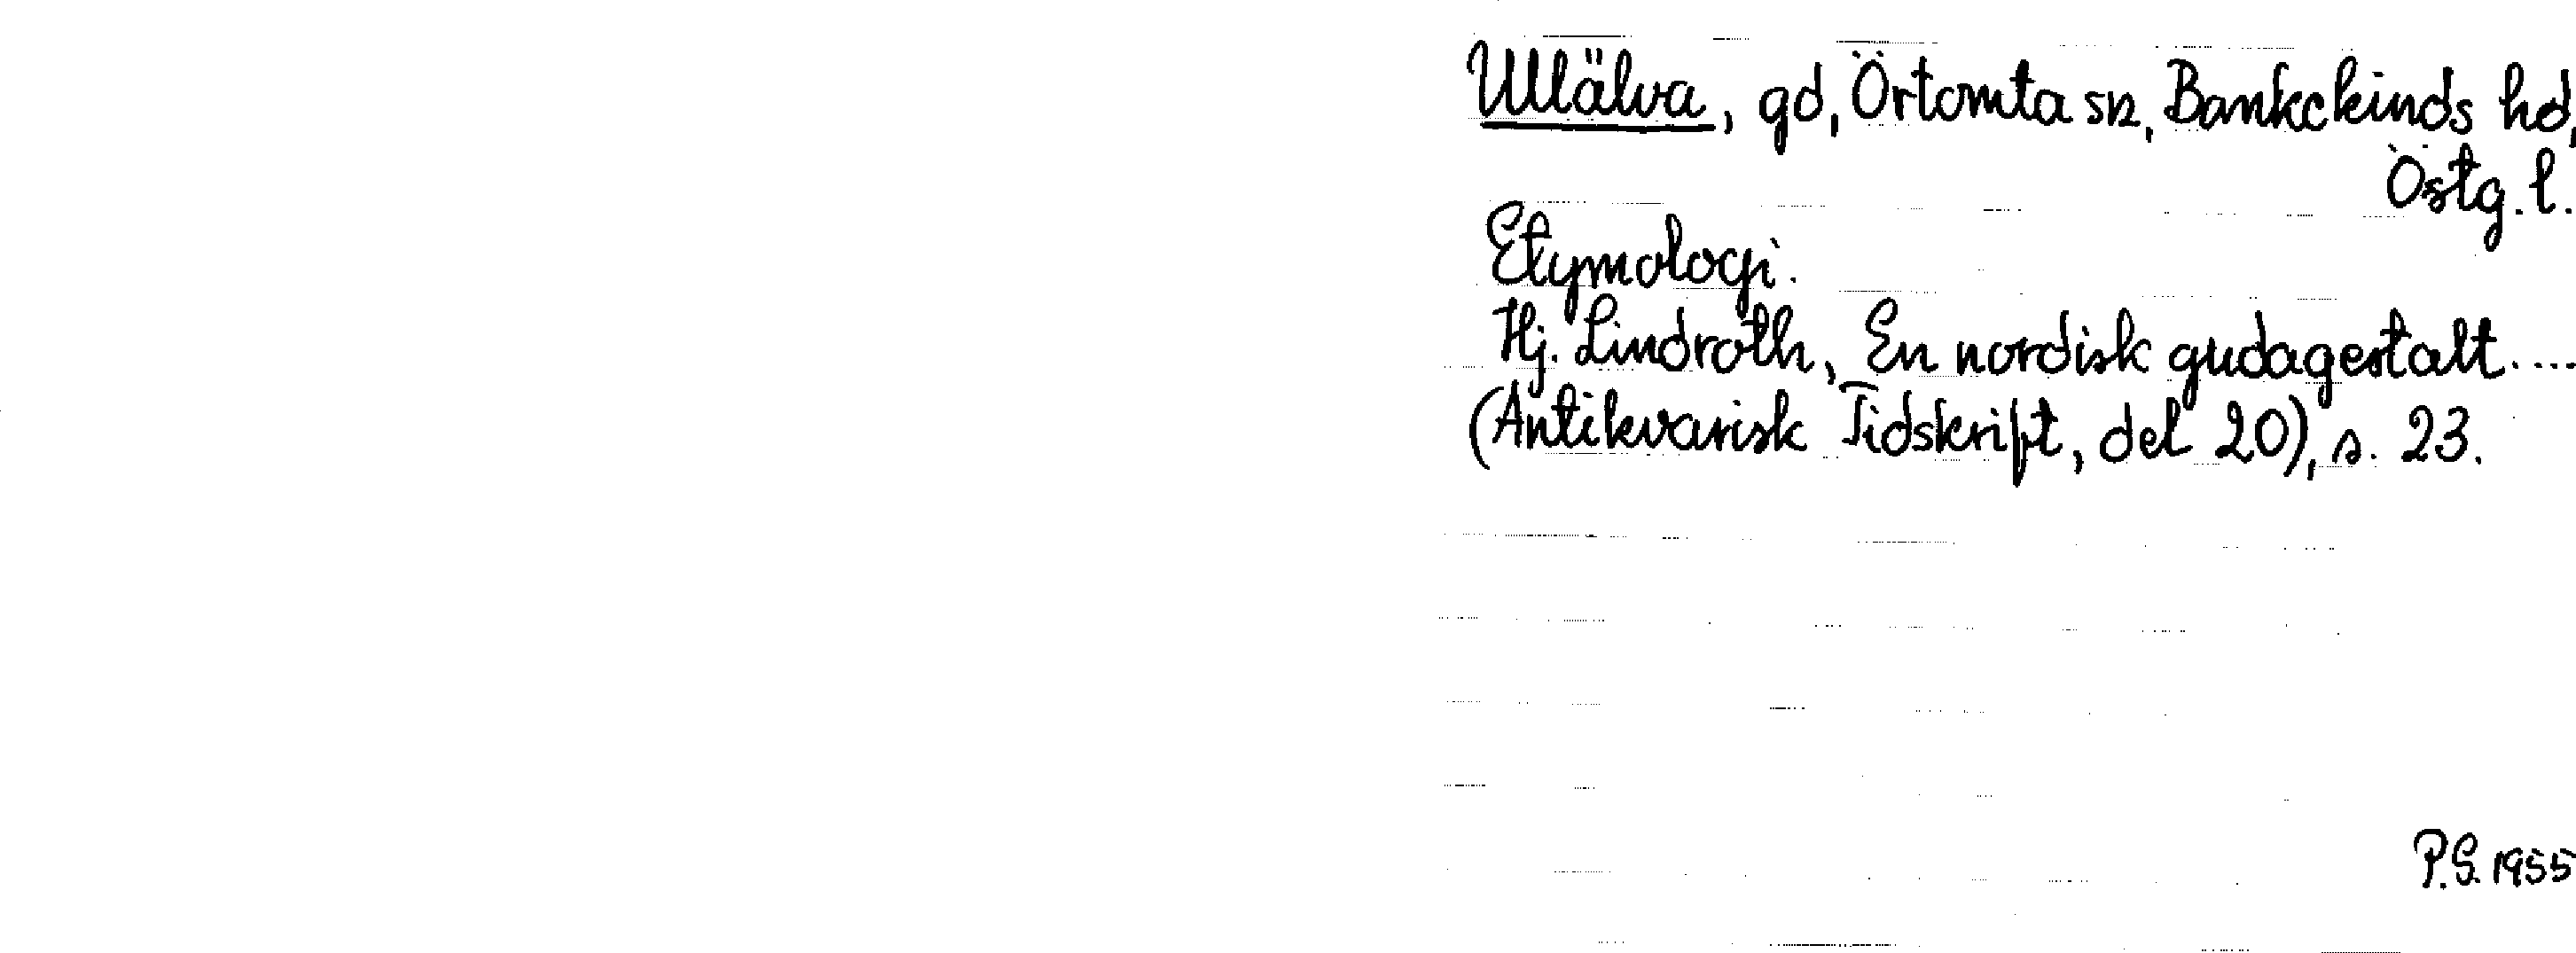 Ullälva, gd, Örtomta sn, Bankekinds hd,
Östg. l.
Etymologi.
Hj. Lindroth, En nordisk gudagestalt....
(Antikvarisk Tidskrift, del 20), s. 23.
P.S. 1955